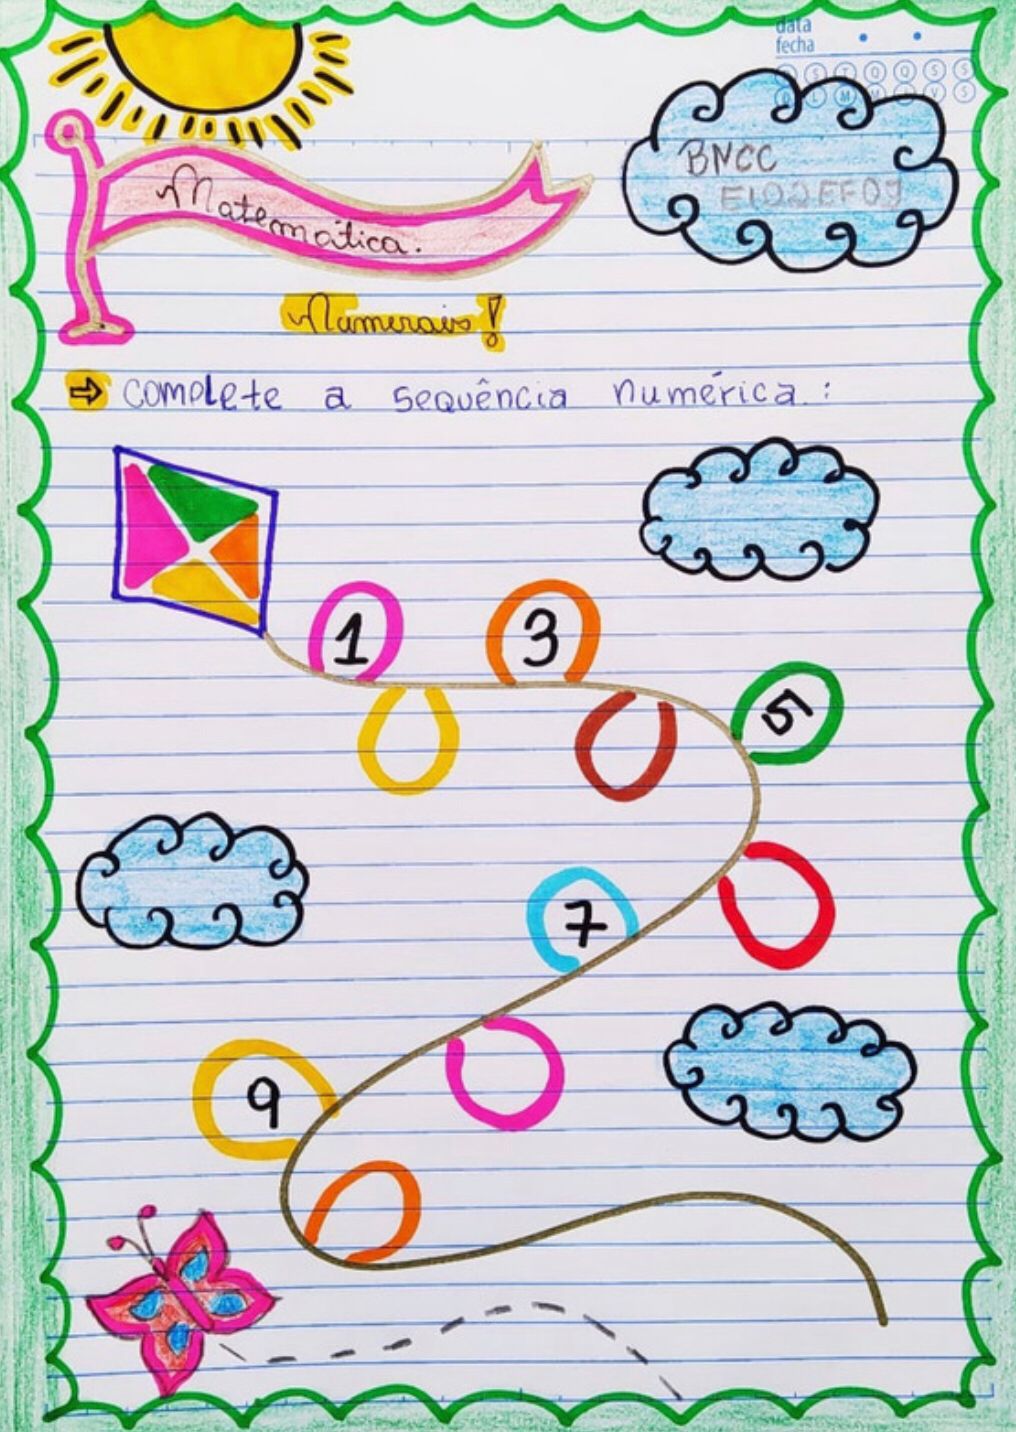 data
fecha
BNCC
Matemática.
Numerais!
⇨ Complete a sequência numérica.:
1
3
5
7
9